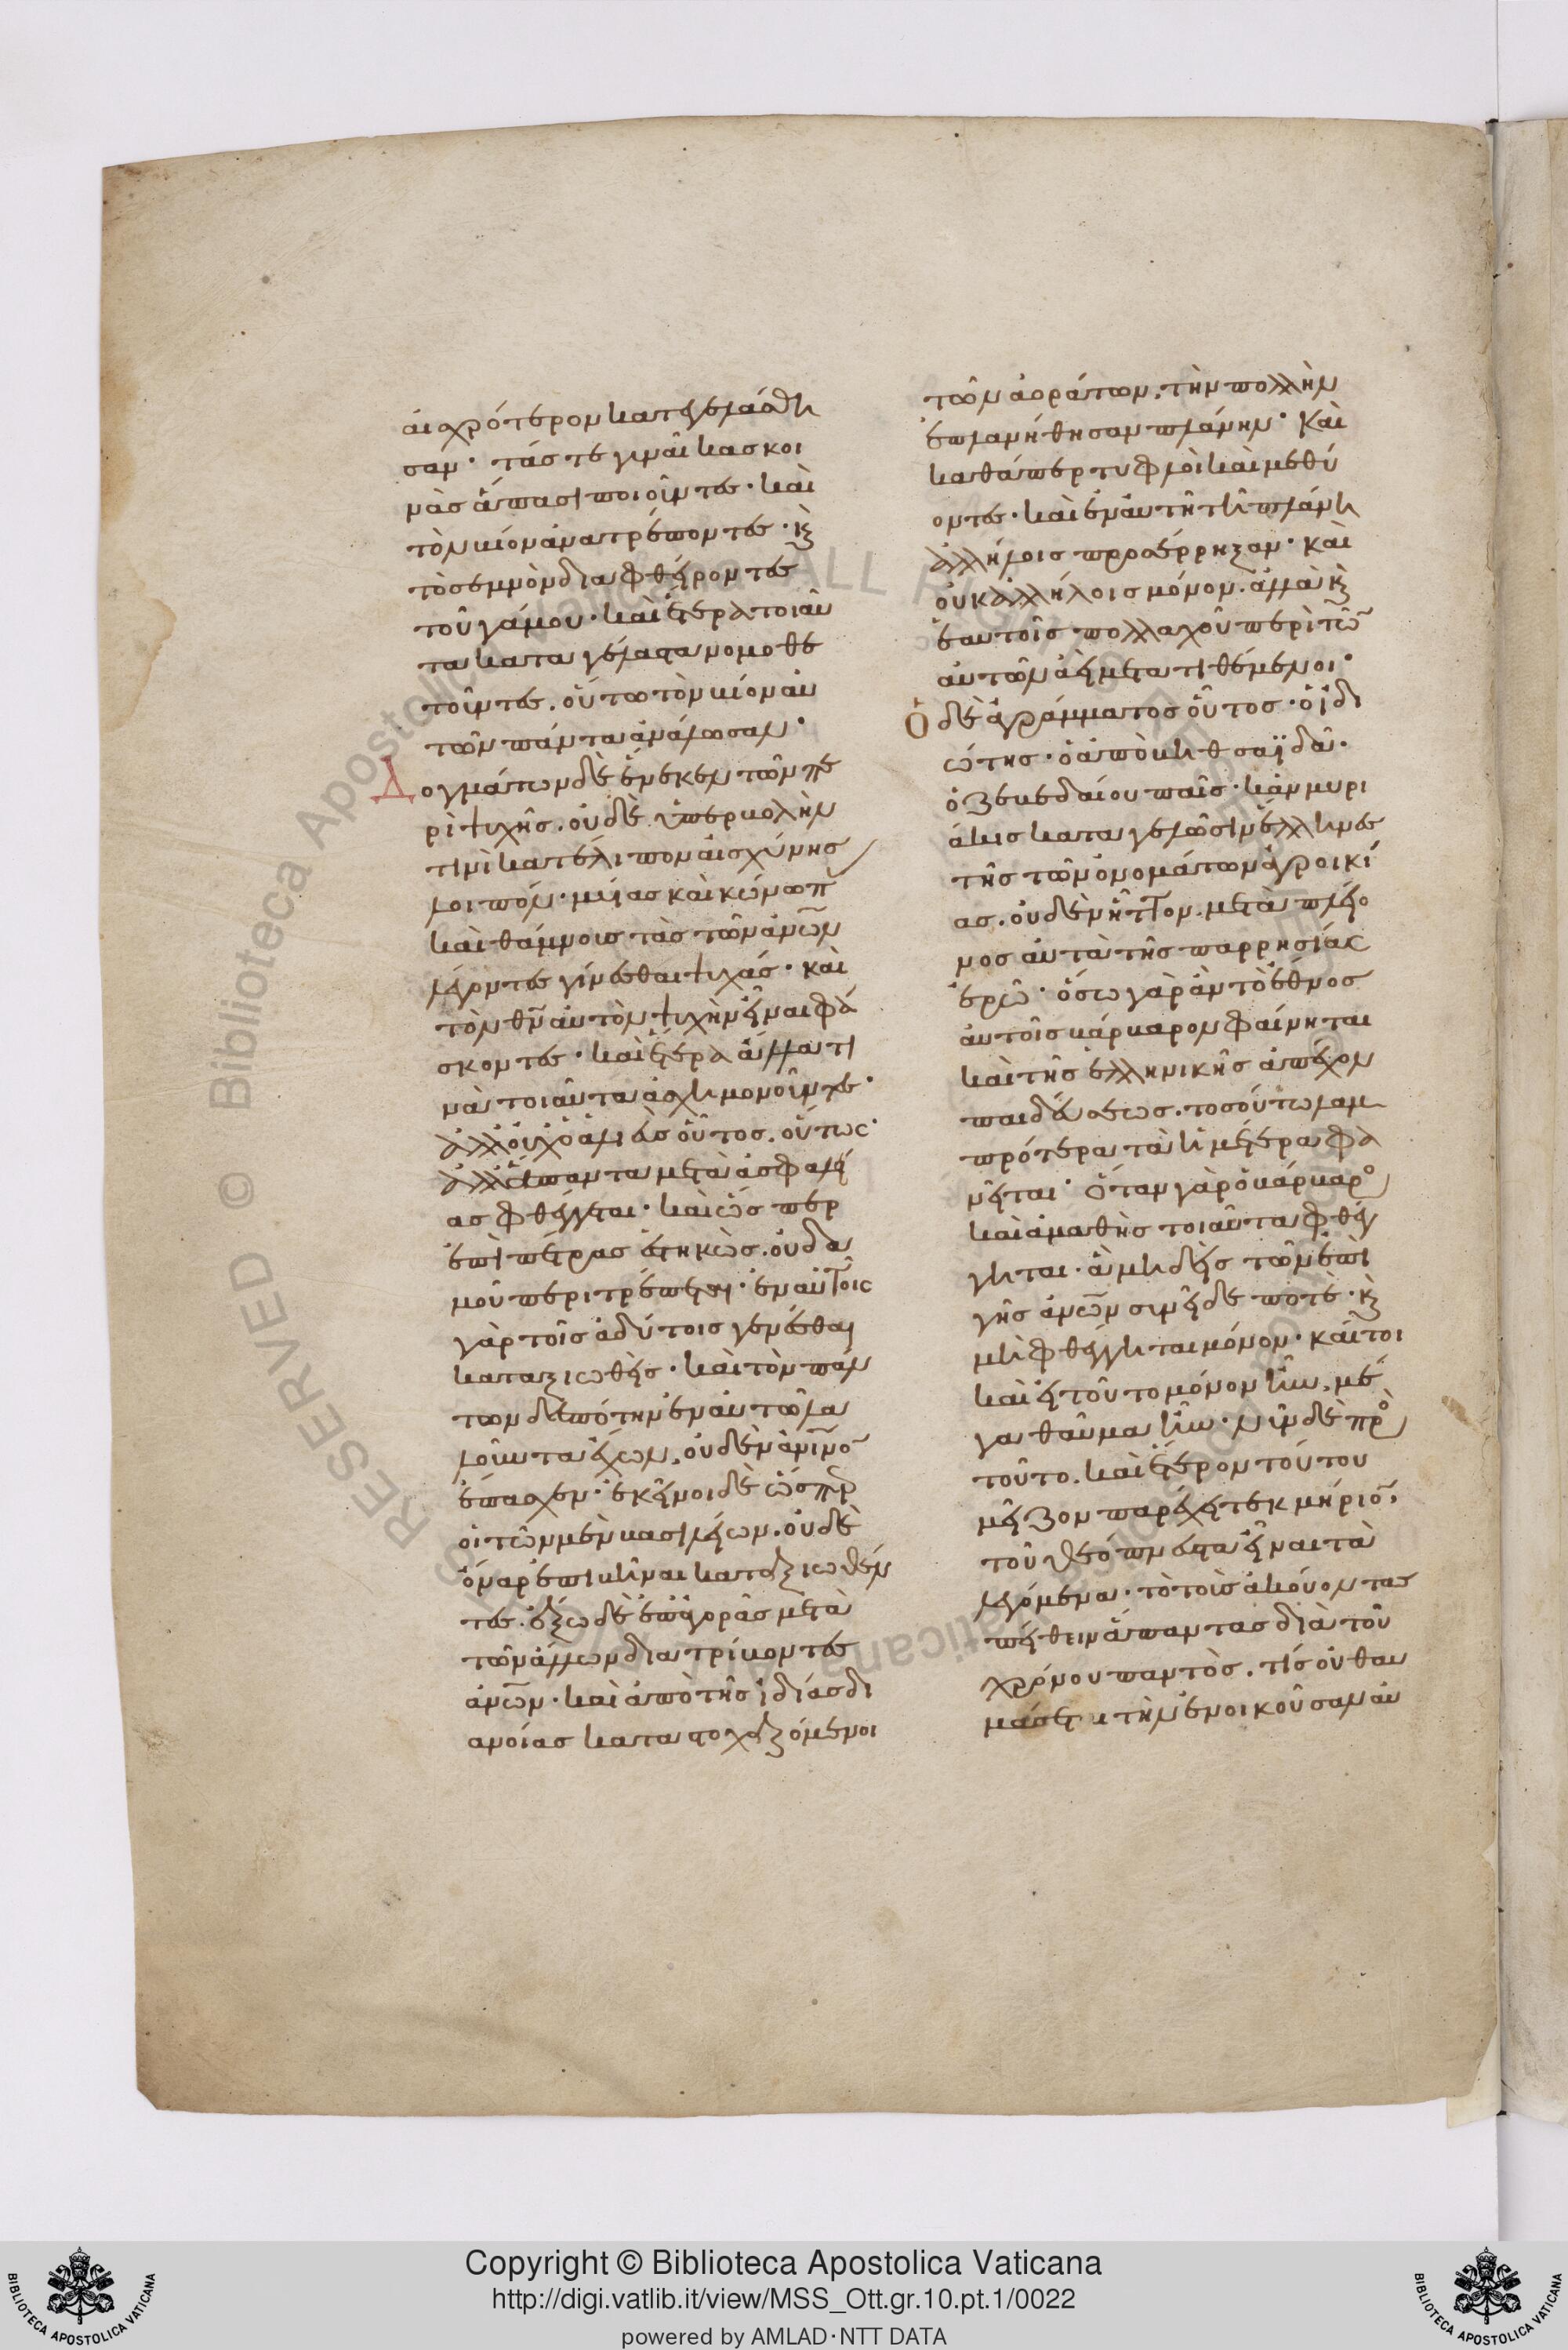 αισχρότερον κατεγελάσθη
σαν· τάς τε γυναῖκας κοι
νὰς ἅπασι ποιοῦντες· καὶ
τὸν βίον ἀνατρέποντες· κ
τὸ σεμνὸν διαφθείροντες
τοῦ γάμου· καὶ ἕτερα τοιαῦ
τα καταγέλαστα νομοθε
τοῦντες. οὕτω τὸν βίον αὐ
τῶν πάντα ἀνάλωσαν·
Δογμάτων δὲ ἕνεκεν τῶν πε
ρὶ ψυχῆς. οὐδὲ ὑπερβολήν
τινὶ κατέλιπον αἰσχύνης
λοιπόν· μυίας καὶ κώνωπ
καὶ θάμνους τὰς τῶν ἀνων
λέγοντες γίνεσθαι ψυχάς· καὶ
τὸν θν αὐτὸν ψυχὴν εἶναι φά
σκοντες· καὶ ἕτερα ἄλλα τι
νὰ τοιαῦτα ἀσχημονοῦντες·
ἀλλ' οὐχ ὁ ἁλιεὺς οὗτος. οὕτως·
ἀλλ' ἅπαντα μετὰ ἀσφαλεί
ας φθέγγεται· καὶ ὥσπερ
ἐπὶ πέτρας ἑστηκὼς. οὐδα
μοῦ περιτρέπεται· ἐν αὐτοῖς
γὰρ τοῖς ἀδύτοις γενέσθαι
καταξιωθεὶς· καὶ τὸν πάν
των δεσπότην ἐν αὐτῶ λα
λοῦντα ἔχων, οὐδὲν ἀνινο
ἔπασχεν· ἐκεῖνοι δὲ ὥσπερ
οἱ τῶν μὲν βασιλείων. οὐδὲ
ὄναρ ἐπιβῆναι καταξιωθέν
τες. ἔξω δὲ ἐπ' ἀγορᾶς μετὰ
τῶν ἄλλων διατρίβοντες
ἀνων· καὶ ἀπὸ τῆς ἰδίας δι
ανοίας καταστοχαζόμενοι
τῶν ἀοράτων, τὴν πολλὴν
ἐπλανήθησαν πλάνην· Καὶ
καθάπερ τυφλοὶ καὶ μεθύ
οντες· καὶ ἐν αὐτῆ τῆ πλάνη
ἀλλήλοις προσέρρηξαν· καὶ
οὐκ ἀλλήλοις μόνον. ἀλλὰ κ
ἑαυτοῖς πολλαχοῦ περὶ τῶ
αὐτῶν ἀεὶ μετατιθέμενοι·
Ὁ δὲ ἀγράμματος οὗτος· ὁ ἰδι
ώτης· ὁ ἀπὸ βηθσαϊδᾶ·
ὁ ζεβεδαίου παῖς· κἂν μυρι
άκις καταγελῶσιν ἕλληνες
τῆς τῶν ὀνομάτων ἀγροικί
ας. οὐδὲν ἧττον μετὰ πλείο
νος αὐτὰ τῆς παρρησίας
ἐρῶ· ὅσω γὰρ ἂν τὸ ἔθνος
αὐτοῖς βάρβαρον φαίνηται
καὶ τῆς ἑλληνικῆς ἀπέχον
παιδεύσεως. τοσούτω λαμ
πρότερα τὰ ἡμέτερα φα
νεῖται· Ὅταν γὰρ ὁ βάρβαρο
καὶ ἀμαθὴς τοιαῦτα φθέγ
γηται. ἃ μηδεὶς τῶν ἐπὶ
γῆς ἀνων συνεῖδε ποτὲ· κ
μὴ φθέγγηται μόνον· καίτοι
καὶ εἰ τοῦτο μόνον ἦν, μέ
γα θαῦμα ἦν· νῦν δὲ πρὸ
τοῦτο. καὶ ἕτερον τούτου
μεῖζον παρέχει τεκμήριο·
τοῦ θεόπνευστα εἶναι τὰ
λεγόμενα· τὸ τοὺς ἀκούοντας
πείθειν ἅπαντας διὰ τοῦ
χρόνου παντὸς. τίς οὐ θαυ
μάσεται τὴν ἐνοικοῦσαν αὐ
Copyright © Biblioteca Apostolica Vaticana
http://digi.vatlib.it/view/MSS_Ott.gr.10.pt.1/0022
powered by AMLAD·NTT DATA